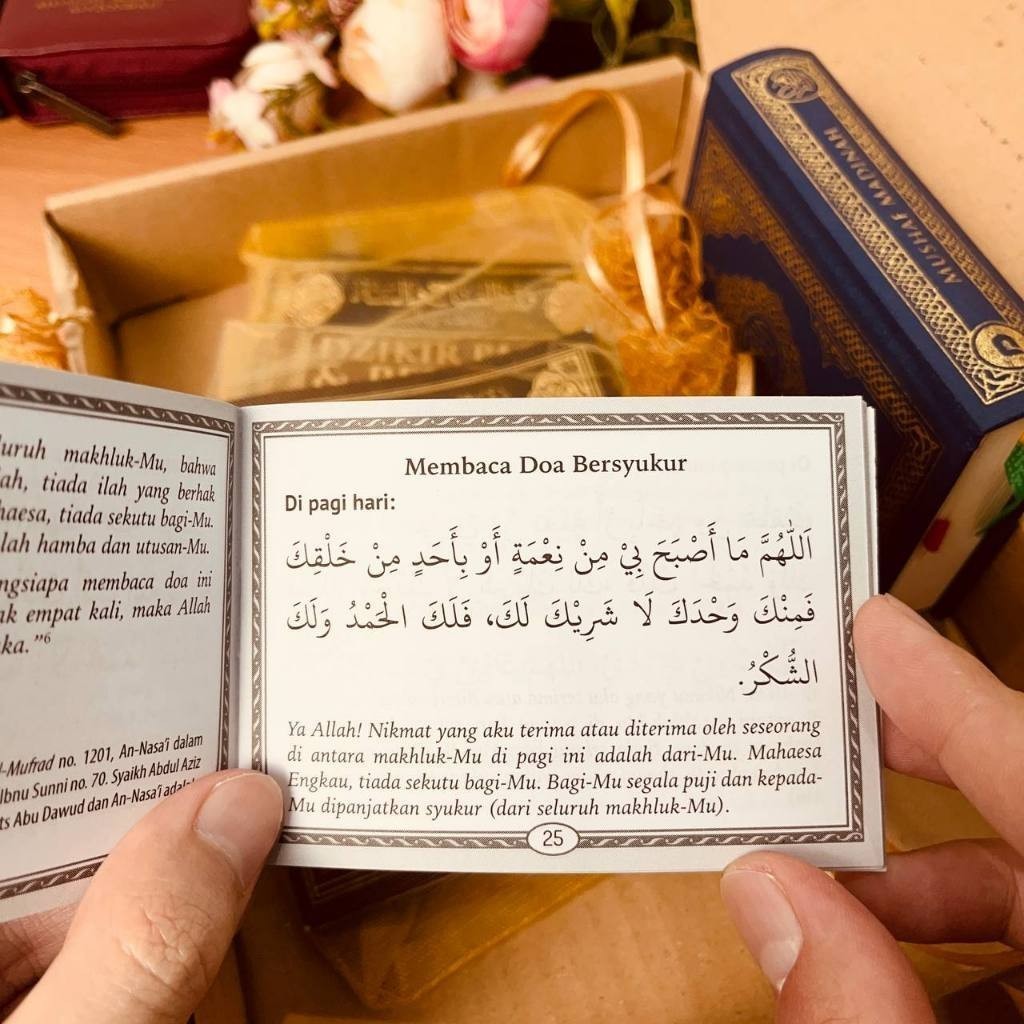 MUSHAF MADINAH
DZIKIR
&
uruh makhluk-Mu, bahwa
ah, tiada ilah yang berhak
haesa, tiada sekutu bagi-Mu.
lah hamba dan utusan-Mu.
ngsiapa membaca doa ini
ak empat kali, maka Allah
ka.”6
l-Mufrad no. 1201, An-Nasa’i dalam
Ibnu Sunni no. 70. Syaikh Abdul Aziz
ts Abu Dawud dan An-Nasa’i
Membaca Doa Bersyukur
Di pagi hari:
اَللّٰهُمَّ مَا أَصْبَحَ بِيْ مِنْ نِعْمَةٍ أَوْ بِأَحَدٍ مِنْ خَلْقِكَ
فَمِنْكَ وَحْدَكَ لَا شَرِيْكَ لَكَ، فَلَكَ الْحَمْدُ وَلَكَ
الشُّكْرُ.
Ya Allah! Nikmat yang aku terima atau diterima oleh seseorang
di antara makhluk-Mu di pagi ini adalah dari-Mu. Mahaesa
Engkau, tiada sekutu bagi-Mu. Bagi-Mu segala puji dan kepada-
Mu dipanjatkan syukur (dari seluruh makhluk-Mu).
25